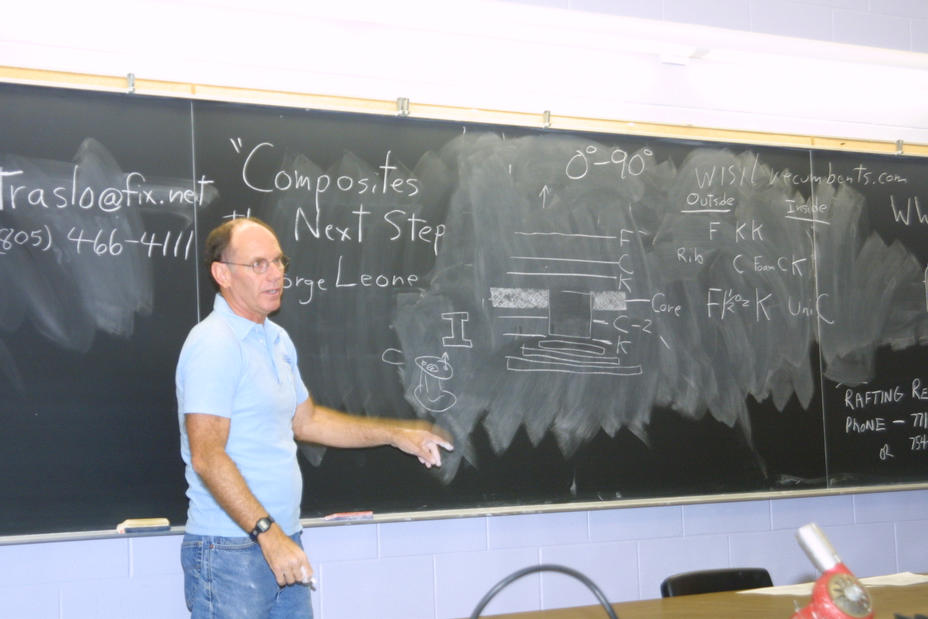 Traslo@fix.net
(805) 466-4111
"Composites
Next Step
Leone
0°-90°
F
C
K
Core
C-2
K
I
C
recumbents.com
Outside
Inside
F KK
Rib
C Foam C K
F 1/2 oz K
Uni C
RAFTING RE
PHONE - 77
OR 754